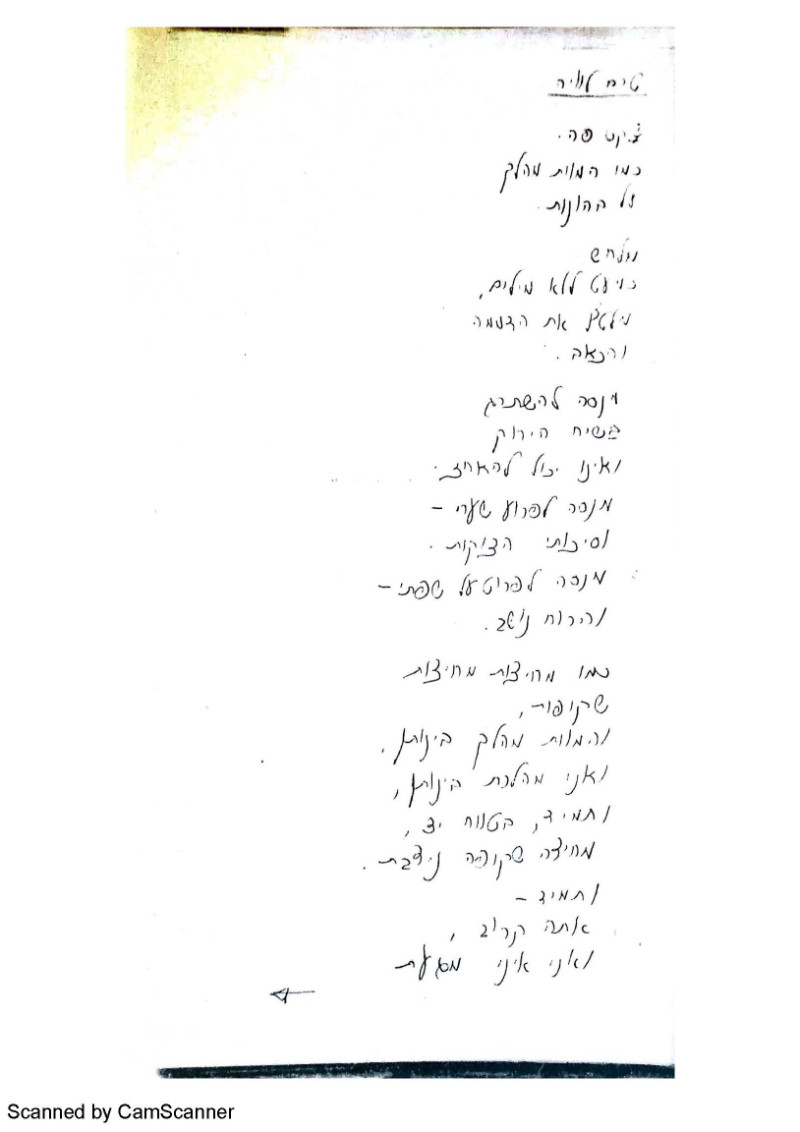 טרם לוויה
שקט פה.
כמו המות מהלך
על בהונות.
מלחש
כמעט ללא מילים,
מלטף את הדממה
והכאב.
מנסה להשתרג
בשיח הירוק
ואינו יכול להאחז.
מנסה לפרוע שערי –
וסיכותי הדוקות.
מנסה לפרוט על שפתי –
והרוח נושב.
כמו מחיצות מחיצות
שקופות,
והמות מהלך בינותן,
ואני מהלכת בינותן,
ותמיד, בטווח יד,
מחיצה שקופה ניצבת.
ותמיד –
אתה קרוב,
ואני איני מגעת
Scanned by CamScanner